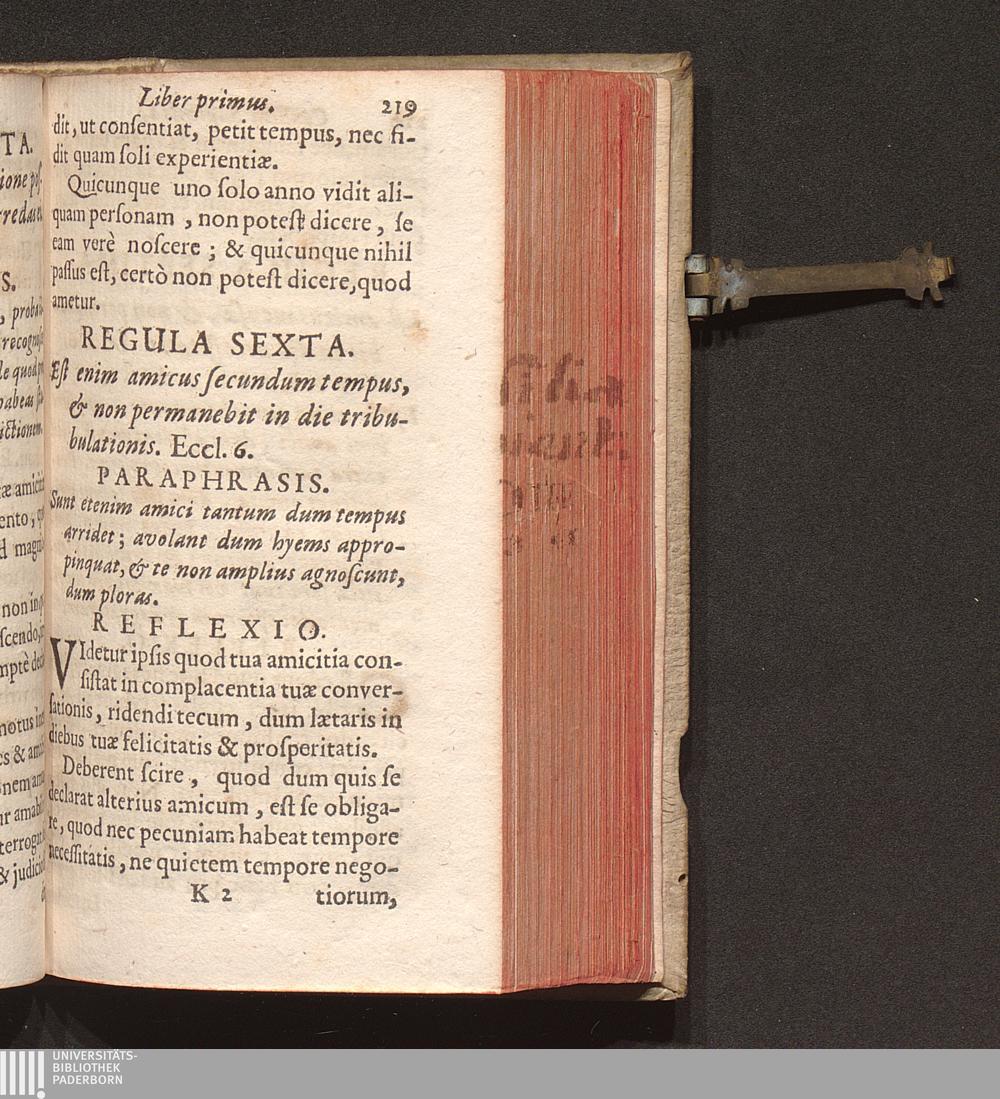 Liber primus. 219
dit, ut conſentiat, petit tempus, nec fi-
dit quam ſoli experientiæ.
Quicunque uno ſolo anno vidit ali-
quam perſonam , non poteſt dicere , ſe
eam verè noſcere ; & quicunque nihil
paſſus eſt, certò non poteſt dicere, quod
ametur.
REGULA SEXTA.
Eſt enim amicus ſecundum tempus,
& non permanebit in die tribu-
bulationis. Eccl. 6.
PARAPHRASIS.
Sunt etenim amici tantum dum tempus
arridet ; avolant dum hyems appro-
pinquat, & te non amplius agnoſcunt,
dum ploras.
REFLEXIO.
VIdetur ipſis quod tua amicitia con-
ſiſtat in complacentia tuæ conver-
ſationis, ridendi tecum , dum lætaris in
diebus tuæ felicitatis & proſperitatis.
Deberent ſcire , quod dum quis ſe
declarat alterius amicum , eſt ſe obliga-
re, quod nec pecuniam habeat tempore
neceſſitatis , ne quietem tempore nego-
K 2 tiorum,
UNIVERSITÄTS-
BIBLIOTHEK
PADERBORN